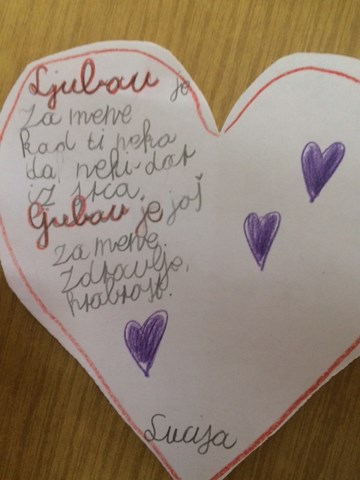 Ljubav je
za mene
kad ti neka
da neki dar
iz srca.
Ljubav je još
za mene.
Zdravlje,
hrabrost.
Lucija